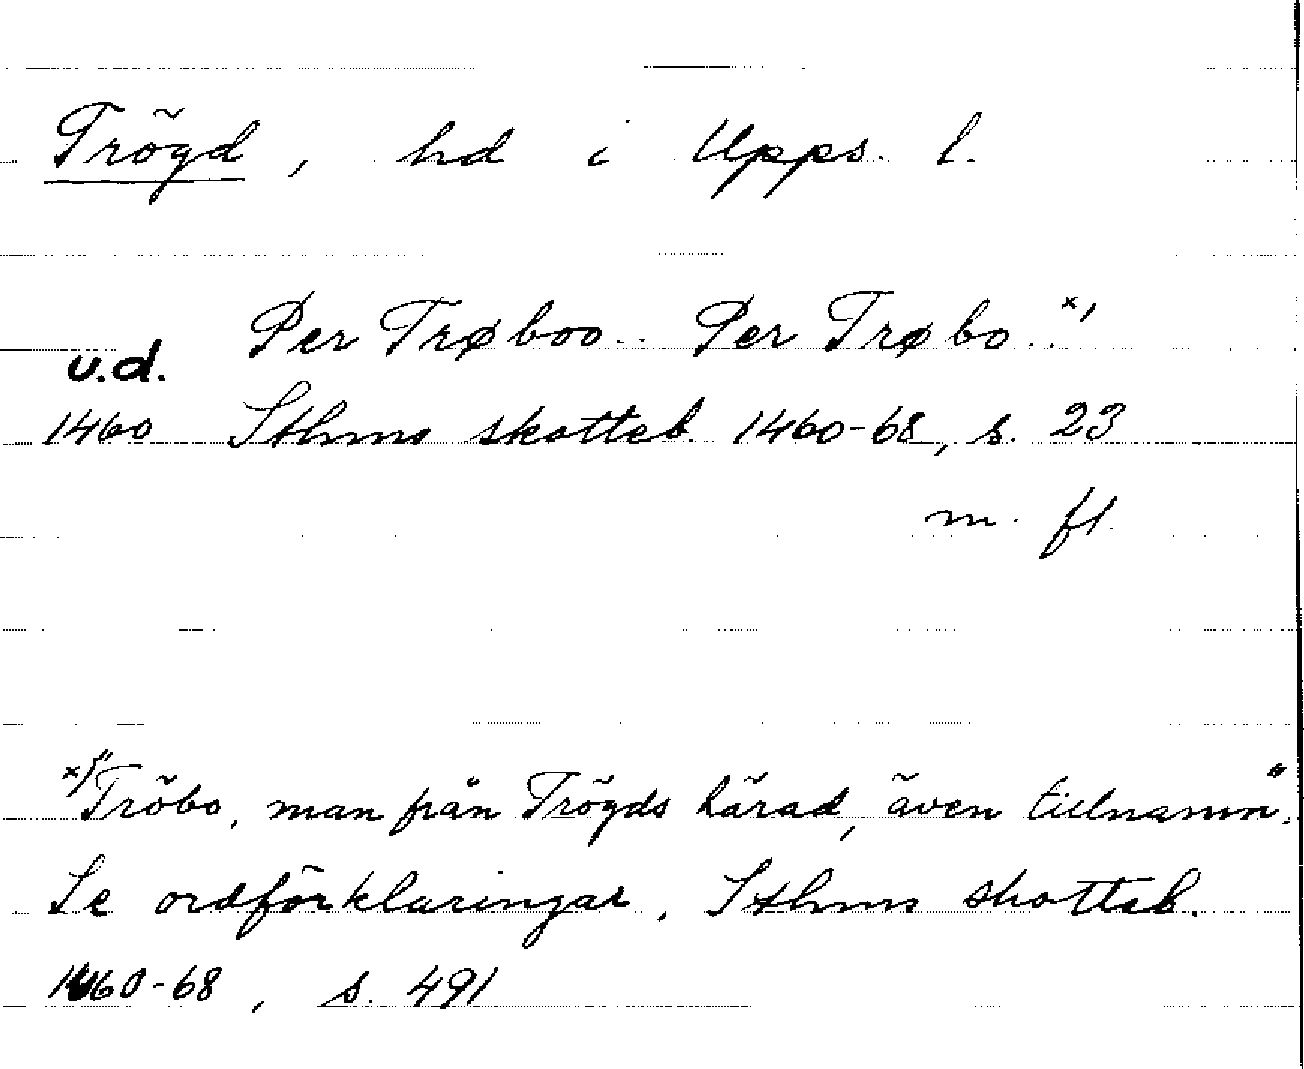 Trögd, hd i Upps. l.
Per Trøboo.. Per Trøbo.. x)
u.d.
1460 Sthms skotteb. 1460-68, s. 23
m. fl.
x) "Tröbo, man från Trögds härad, även tillnamn".
Se ordförklaringar, Sthms skotteb.
1460-68, s. 491